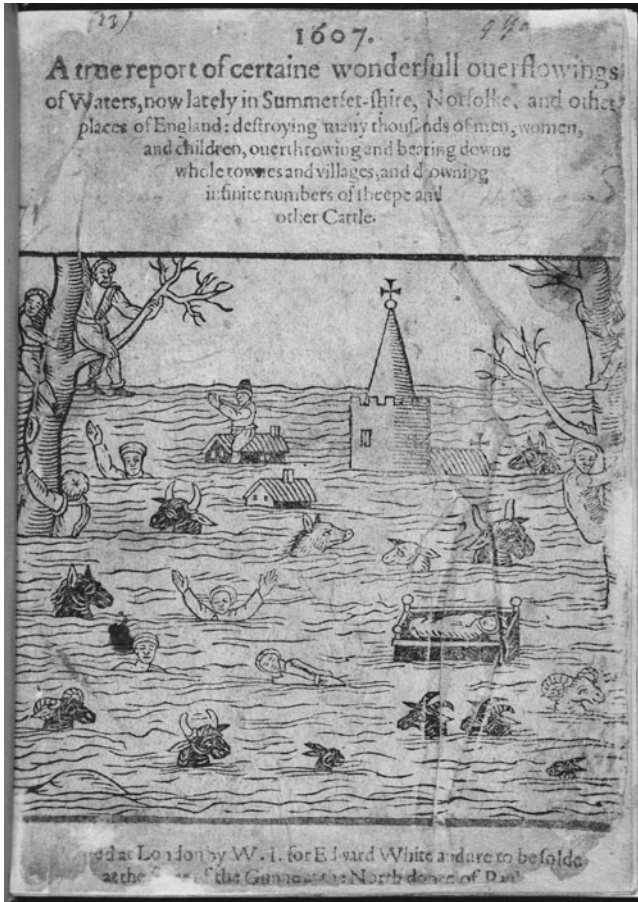 (23)
1607.
A true report of certaine wonderfull ouerflowings
of Waters, now lately in Summerset-shire, Norfolke, and other
places of England: destroying many thousands of men, women,
and children, ouerthrowing and bearing downe
whole townes and villages, and drowning
infinite numbers of sheepe and
other Cattle.
at London by W. I. for Edward White and are to be solde
at the of the Gunne at North doore of